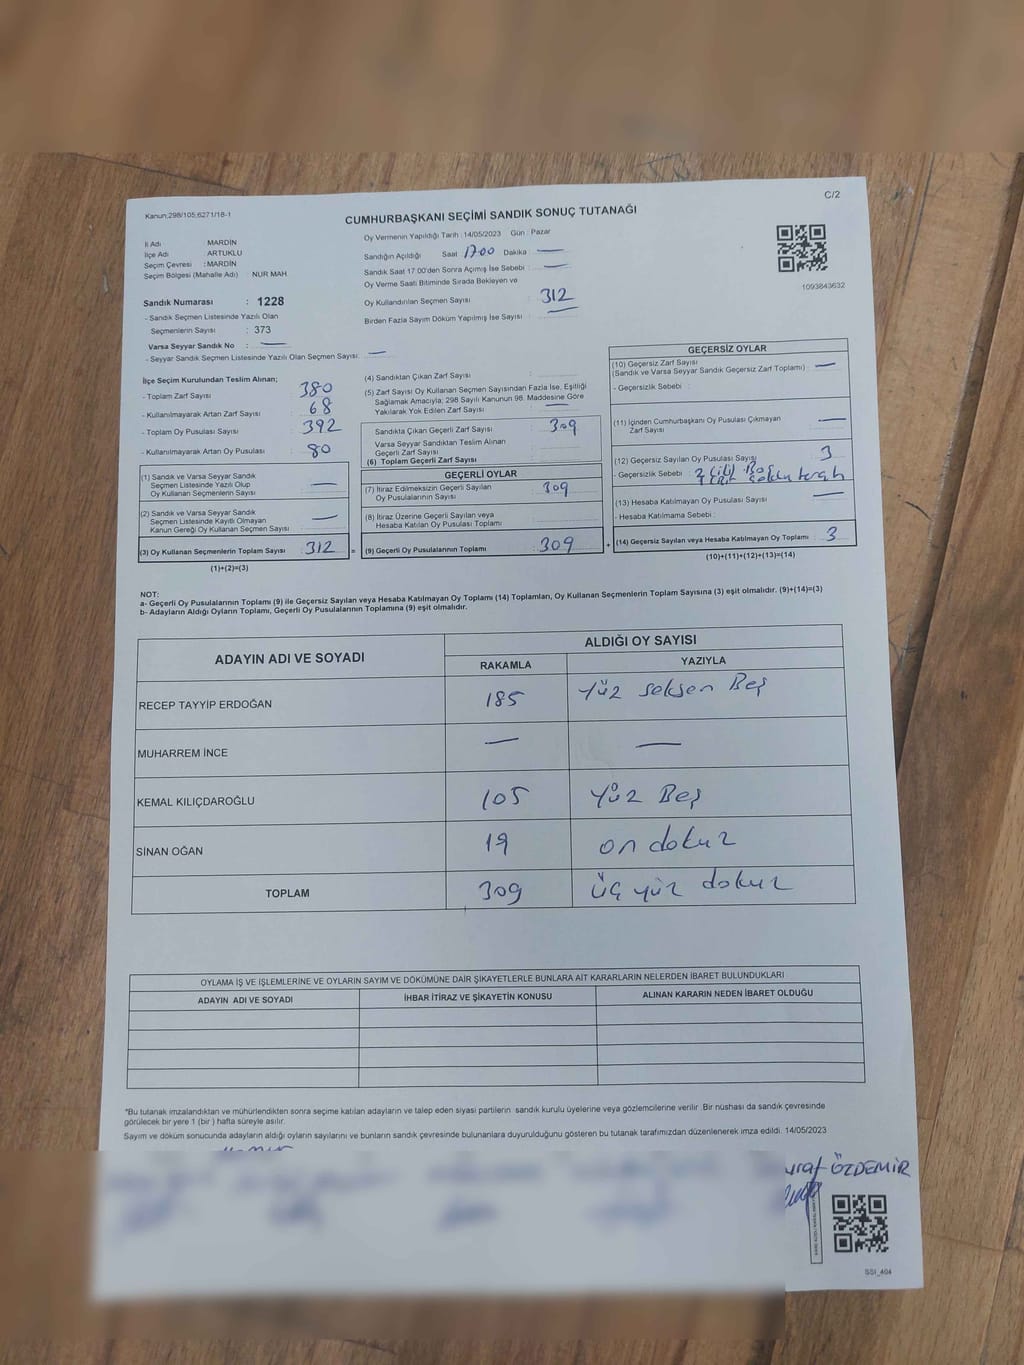 C/2
Kanun,298/105,6271/18-1
CUMHURBAŞKANI SEÇİMİ SANDIK SONUÇ TUTANAĞI
İl Adı MARDİN
İlçe Adı ARTUKLU
Seçim Çevresi : MARDİN
Seçim Bölgesi (Mahalle Adı) : NUR MAH
Sandık Numarası : 1228
- Sandık Seçmen Listesinde Yazılı Olan
Seçmenlerin Sayısı : 373
Varsa Seyyar Sandık No : —
- Seyyar Sandık Seçmen Listesinde Yazılı Olan Seçmen Sayısı: —
Oy Vermenin Yapıldığı Tarih : 14/05/2023 Gün : Pazar
Sandığın Açıldığı Saat 17:00 Dakika : —
Sandık Saat 17:00'den Sonra Açımış İse Sebebi : —
Oy Verme Saati Bitiminde Sırada Bekleyen ve
Oy Kullandırılan Seçmen Sayısı : 312
Birden Fazla Sayım Döküm Yapılmış İse Sayısı :
1093843632
İlçe Seçim Kurulundan Teslim Alınan;
- Toplam Zarf Sayısı : 380
- Kullanılmayarak Artan Zarf Sayısı : 68
- Toplam Oy Pusulası Sayısı : 392
- Kullanılmayarak Artan Oy Pusulası : 80
(1) Sandık ve Varsa Seyyar Sandık
Seçmen Listesinde Yazılı Olup
Oy Kullanan Seçmenlerin Sayısı : —
(2) Sandık ve Varsa Seyyar Sandık
Seçmen Listesinde Kayıtlı Olmayan
Kanun Gereği Oy Kullanan Seçmen Sayısı : —
(3) Oy Kullanan Seçmenlerin Toplam Sayısı : 312 =
(1)+(2)=(3)
(4) Sandıktan Çıkan Zarf Sayısı :
(5) Zarf Sayısı Oy Kullanan Seçmen Sayısından Fazla İse, Eşitliği
Sağlamak Amacıyla; 298 Sayılı Kanunun 98. Maddesine Göre
Yakılarak Yok Edilen Zarf Sayısı : —
Sandıkta Çıkan Geçerli Zarf Sayısı : 309
Varsa Seyyar Sandıktan Teslim Alınan
Geçerli Zarf Sayısı :
(6) Toplam Geçerli Zarf Sayısı :
GEÇERLİ OYLAR
(7) İtiraz Edilmeksizin Geçerli Sayılan
Oy Pusulalarının Sayısı : 309
(8) İtiraz Üzerine Geçerli Sayılan veya
Hesaba Katılan Oy Pusulası Toplamı :
(9) Geçerli Oy Pusulalarının Toplamı : 309 +
GEÇERSİZ OYLAR
(10) Geçersiz Zarf Sayısı
(Sandık ve Varsa Seyyar Sandık Geçersiz Zarf Toplamı) : —
- Geçersizlik Sebebi :
(11) İçinden Cumhurbaşkanı Oy Pusulası Çıkmayan
Zarf Sayısı : —
(12) Geçersiz Sayılan Oy Pusulası Sayısı : 3
- Geçersizlik Sebebi : 2 Boş
(13) Hesaba Katılmayan Oy Pusulası Sayısı : —
- Hesaba Katılmama Sebebi :
(14) Geçersiz Sayılan veya Hesaba Katılmayan Oy Toplamı : 3
(10)+(11)+(12)+(13)=(14)
NOT:
a- Geçerli Oy Pusulalarının Toplamı (9) ile Geçersiz Sayılan veya Hesaba Katılmayan Oy Toplamı (14) Toplamları, Oy Kullanan Seçmenlerin Toplam Sayısına (3) eşit olmalıdır. (9)+(14)=(3)
b- Adayların Aldığı Oyların Toplamı, Geçerli Oy Pusulalarının Toplamına (9) eşit olmalıdır.
ADAYIN ADI VE SOYADI
ALDIĞI OY SAYISI
RAKAMLA YAZIYLA
RECEP TAYYİP ERDOĞAN 185 Yüz seksen Beş
MUHARREM İNCE — —
KEMAL KILIÇDAROĞLU 105 Yüz Beş
SİNAN OĞAN 19 on dokuz
TOPLAM 309 üç yüz dokuz
OYLAMA İŞ VE İŞLEMLERİNE VE OYLARIN SAYIM VE DÖKÜMÜNE DAİR ŞİKAYETLERLE BUNLARA AİT KARARLARIN NELERDEN İBARET BULUNDUKLARI
ADAYIN ADI VE SOYADI İHBAR İTİRAZ VE ŞİKAYETİN KONUSU ALINAN KARARIN NEDEN İBARET OLDUĞU
*Bu tutanak imzalandıktan ve mühürlendikten sonra seçime katılan adayların ve talep eden siyasi partilerin sandık kurulu üyelerine veya gözlemcilerine verilir. Bir nüshası da sandık çevresinde
görülecek bir yere 1 (bir ) hafta süreyle asılır.
Sayım ve döküm sonucunda adayların aldığı oyların sayılarını ve bunların sandık çevresinde bulunanlara duyurulduğunu gösteren bu tutanak tarafımızdan düzenlenerek imza edildi. 14/05/2023
ÖZDEMİR
SSI_404